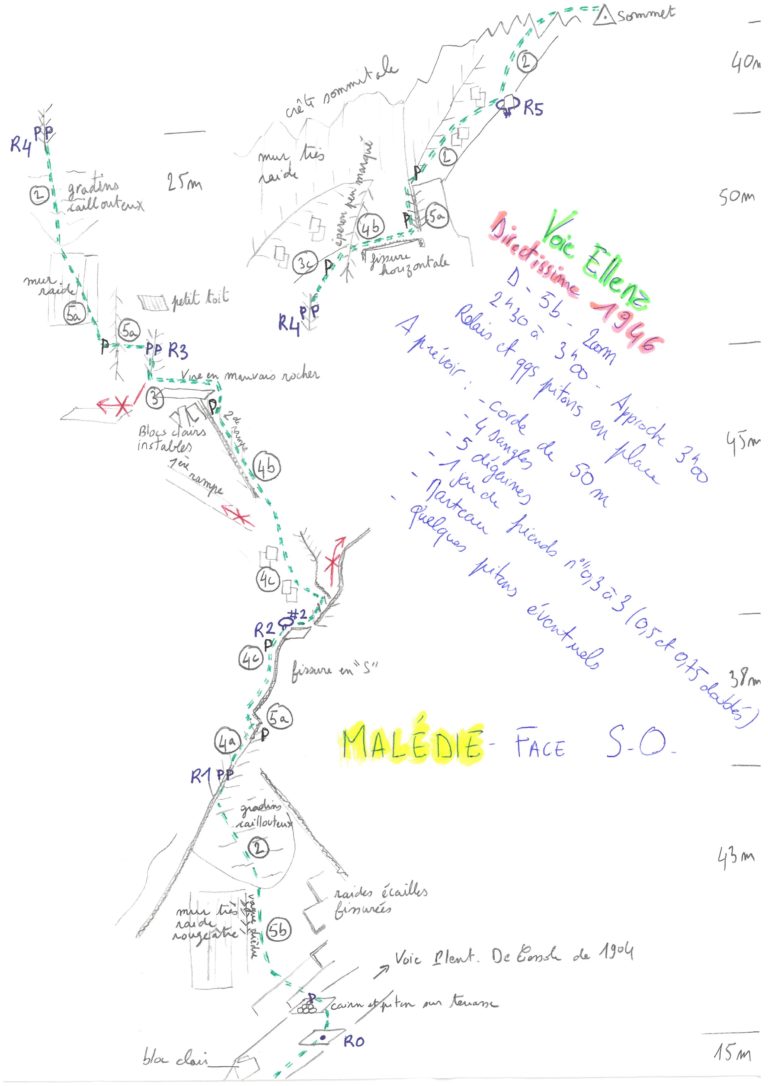 Sommet
2
40m
crête sommitale
R5
R4 PP
25m
mur très
raide
éperon peu marqué
2
P
50m
2
gradins
caillouteux
P
5a
4b
3c
P
fissure
horizontale
R4 PP
mur
raide
5a
petit toit
5a
P
PP R3
Vire en mauvais rocher
3
P
Blocs clairs
instables
2de rampe
1ère rampe
4b
45m
Voie Ellena
Directissime 1946
D - 5b - 200m
2h30 à 3h00 - Approche 3h00
Relais et qqs pitons en place
A prévoir :
- corde de 50 m
- 4 sangles
- 5 dégaines
- 1 jeu de friends n° 0,3 à 3 (0,5 et 0,75 doublés)
- Marteau
- quelques pitons éventuels
4c
#2
R2
P
4c
fissure en "S"
38m
5a
P
4a
MALÉDIE - FACE S-O-
R1 PP
gradins
caillouteux
2
43m
raides écailles
fissurées
mur très
raide
rougeâtre
vague dièdre
5b
Voie Plent. De Cessole de 1904
P
cairn et piton sur terrasse
R0
bloc clair
15m